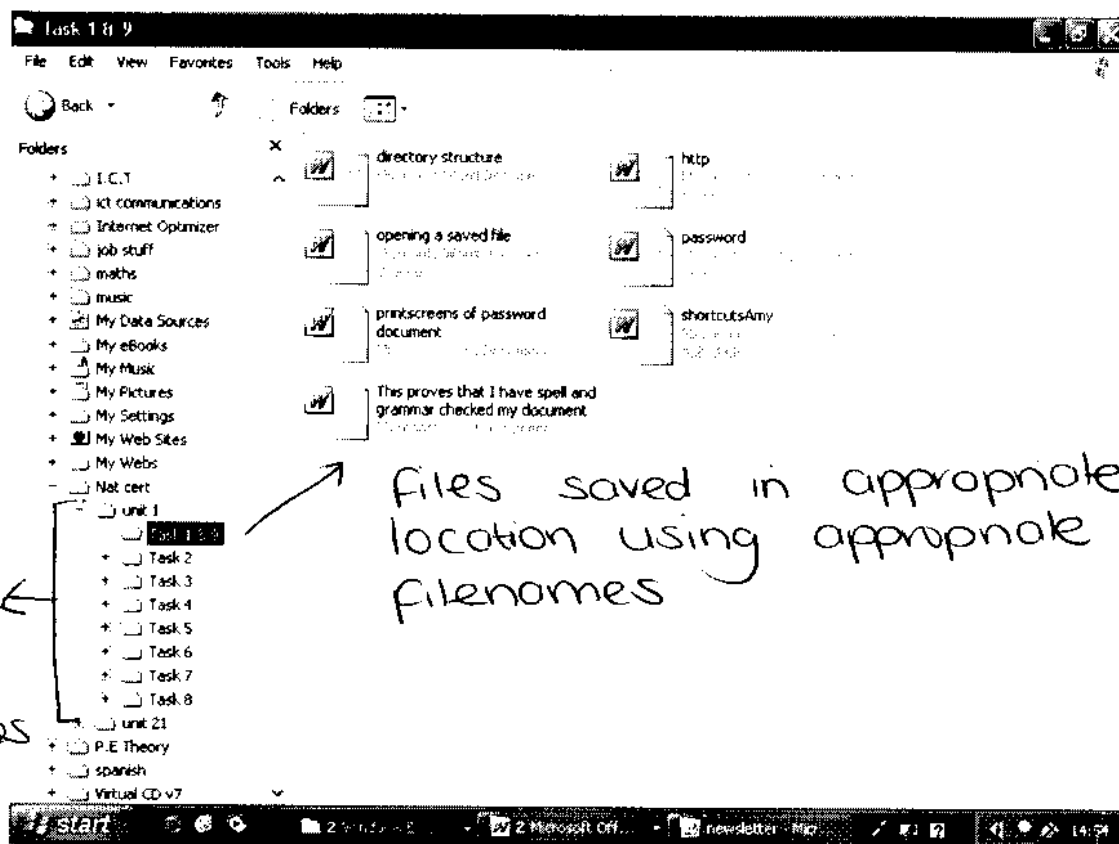 Task 1 & 9
File Edit View Favorites Tools Help
Back
Folders
Folders
I.C.T
ict communications
Internet Optimizer
job stuff
maths
music
My Data Sources
My eBooks
My Music
My Pictures
My Settings
My Web Sites
My Webs
Nat cert
unit 1
Task 1 & 9
Task 2
Task 3
Task 4
Task 5
Task 6
Task 7
Task 8
unit 21
P.E Theory
spanish
Virtual CD v7
directory structure
http
opening a saved file
password
printscreens of password
document
shortcutsAmy
This proves that I have spell and
grammar checked my document
files saved in appropriate
location using appropriate
filenames
start
2 Microsoft Off...
newsletter - Mic
14:54